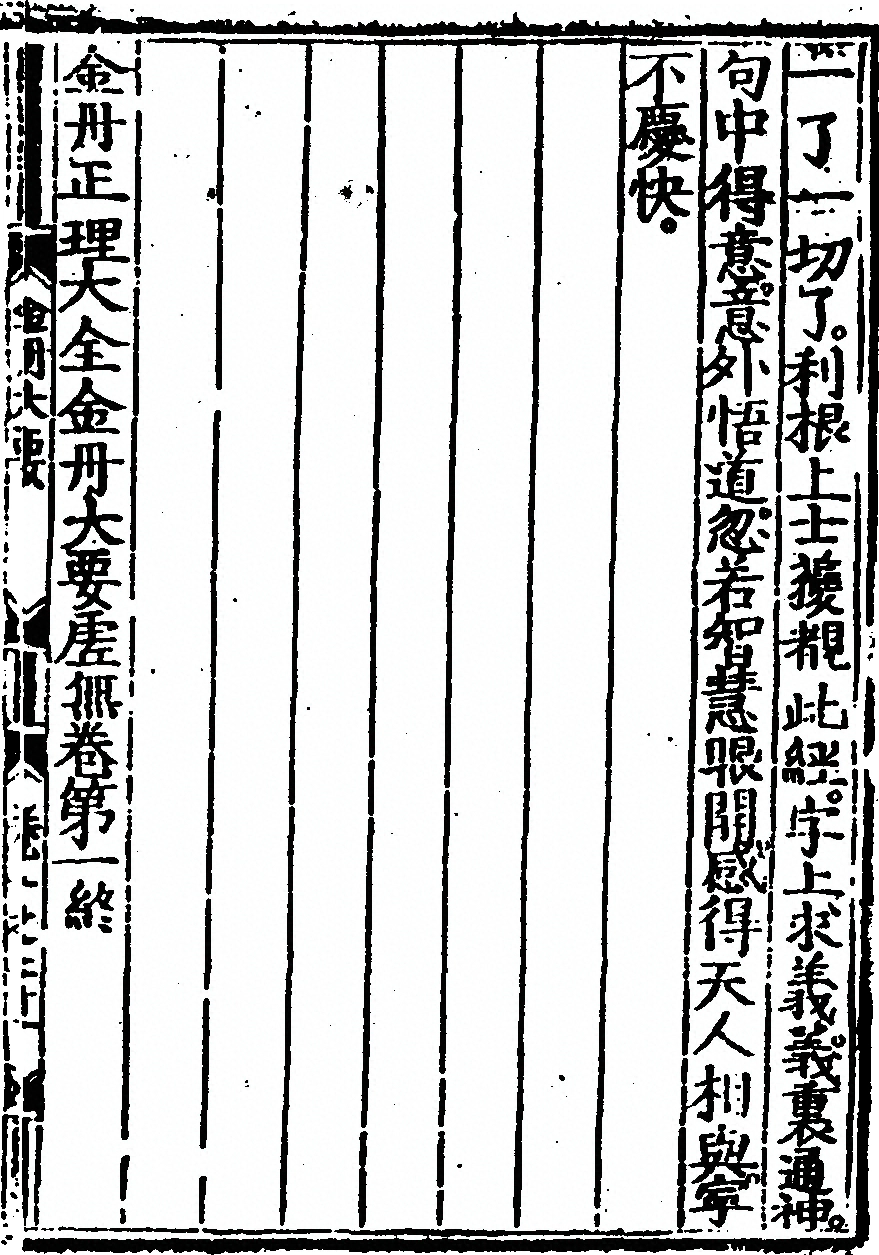 一了一切了。利根上士獲覩此經。字上求義。義裏通神。
句中得意。意外悟道。忽若智慧眼開。感得天人相與。寧
不慶快。
金丹正理大全金丹大要虛無卷第一終
金丹大要
卷一